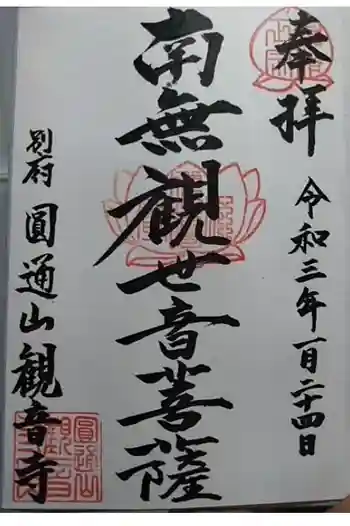 奉拝
令和三年一月二十四日
南無観世音菩薩
別府 圓通山観音寺
圓通山
観音寺